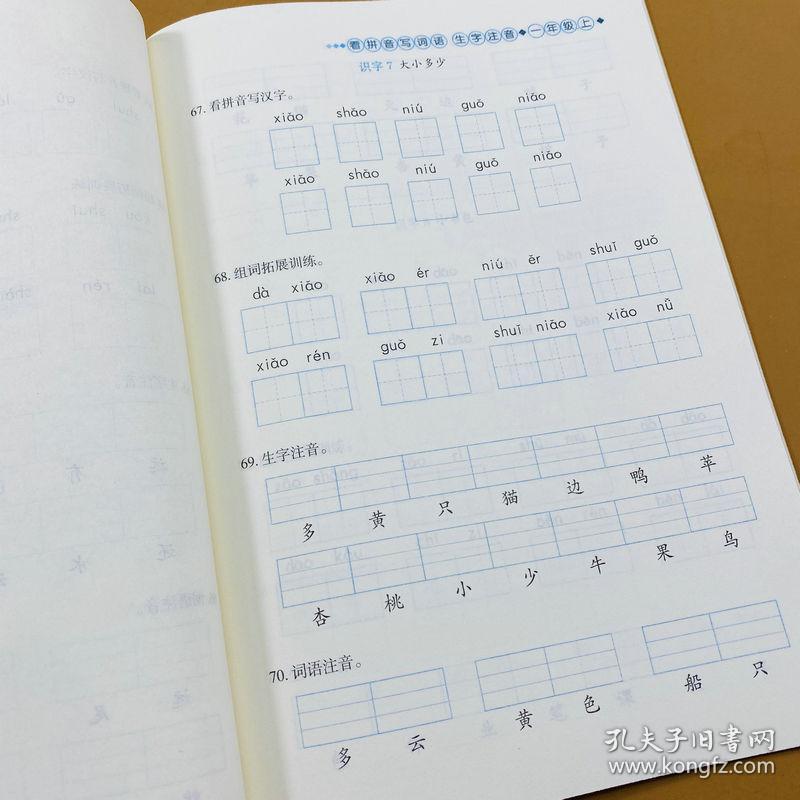 看拼音写词语 生字注音 一年级上
识字7 大小多少
67. 看拼音写汉字。
xiǎo shǎo niú guǒ niǎo
xiǎo shǎo niú guǒ niǎo
68. 组词拓展训练。
dà xiǎo xiǎo ér niú ěr shuǐ guǒ
xiǎo rén guǒ zi shuǐ niǎo xiǎo nǚ
69. 生字注音。
多 黄 只 猫 边 鸭 苹
杏 桃 小 少 牛 果 鸟
70. 词语注音。
多 云 黄 色 船 只
孔夫子旧书网
www.kongfz.com